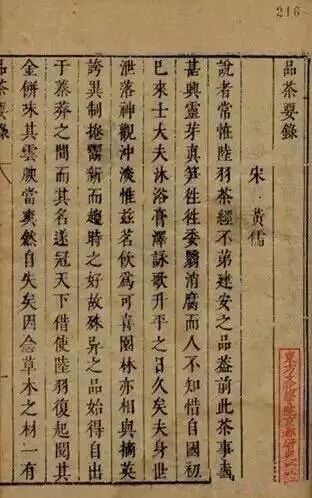 216
品茶要錄
宋 黃儒
說者常惟陸羽茶經不第建安之品蓋前此茶事未
甚興靈芽真笋往往委翳消腐而人不知惜自國初
已來士大夫沐浴膏澤詠歌升平之日久矣夫身世
泄落神觀沖淡惟兹茗飲為可喜園林亦相與摘英
誇異制捲鬻新而趨時之好故殊異之品始得自出
于蓁莽之間而其名遂冠天下借使陸羽復起閱其
金餅味其雲腴當爽然自失矣因念草木之材一有
品茶要錄